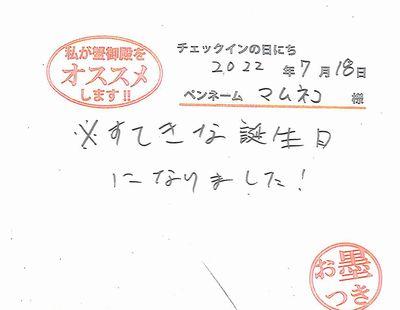 私が蟹御殿を
オススメ
します!!
チェックインの日にち
2022年7月18日
ペンネーム マムネコ 様
※すてきな誕生日
になりました!
お墨
つき